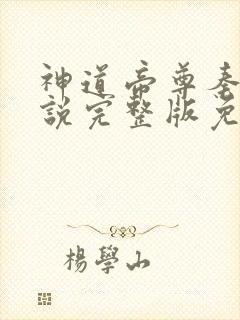 神道帝尊秦
説完整版免
楊學山